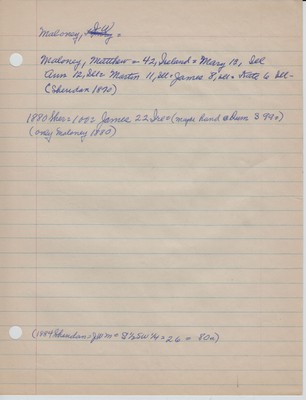 Maloney, JW =
Maloney, Matthew = 42, Ireland = Mary 18, Ill
Ann 12, Ill = Martin 11, Ill = James 8, Ill = Kate 6 Ill -
(Sheridan 1870)
1880 Sher = 100 = James 22 Ire = (myps hand
(only Maloney 1880)
(1884 Sheridan = JWM = S½ SW ¼ = 26 = 80a)